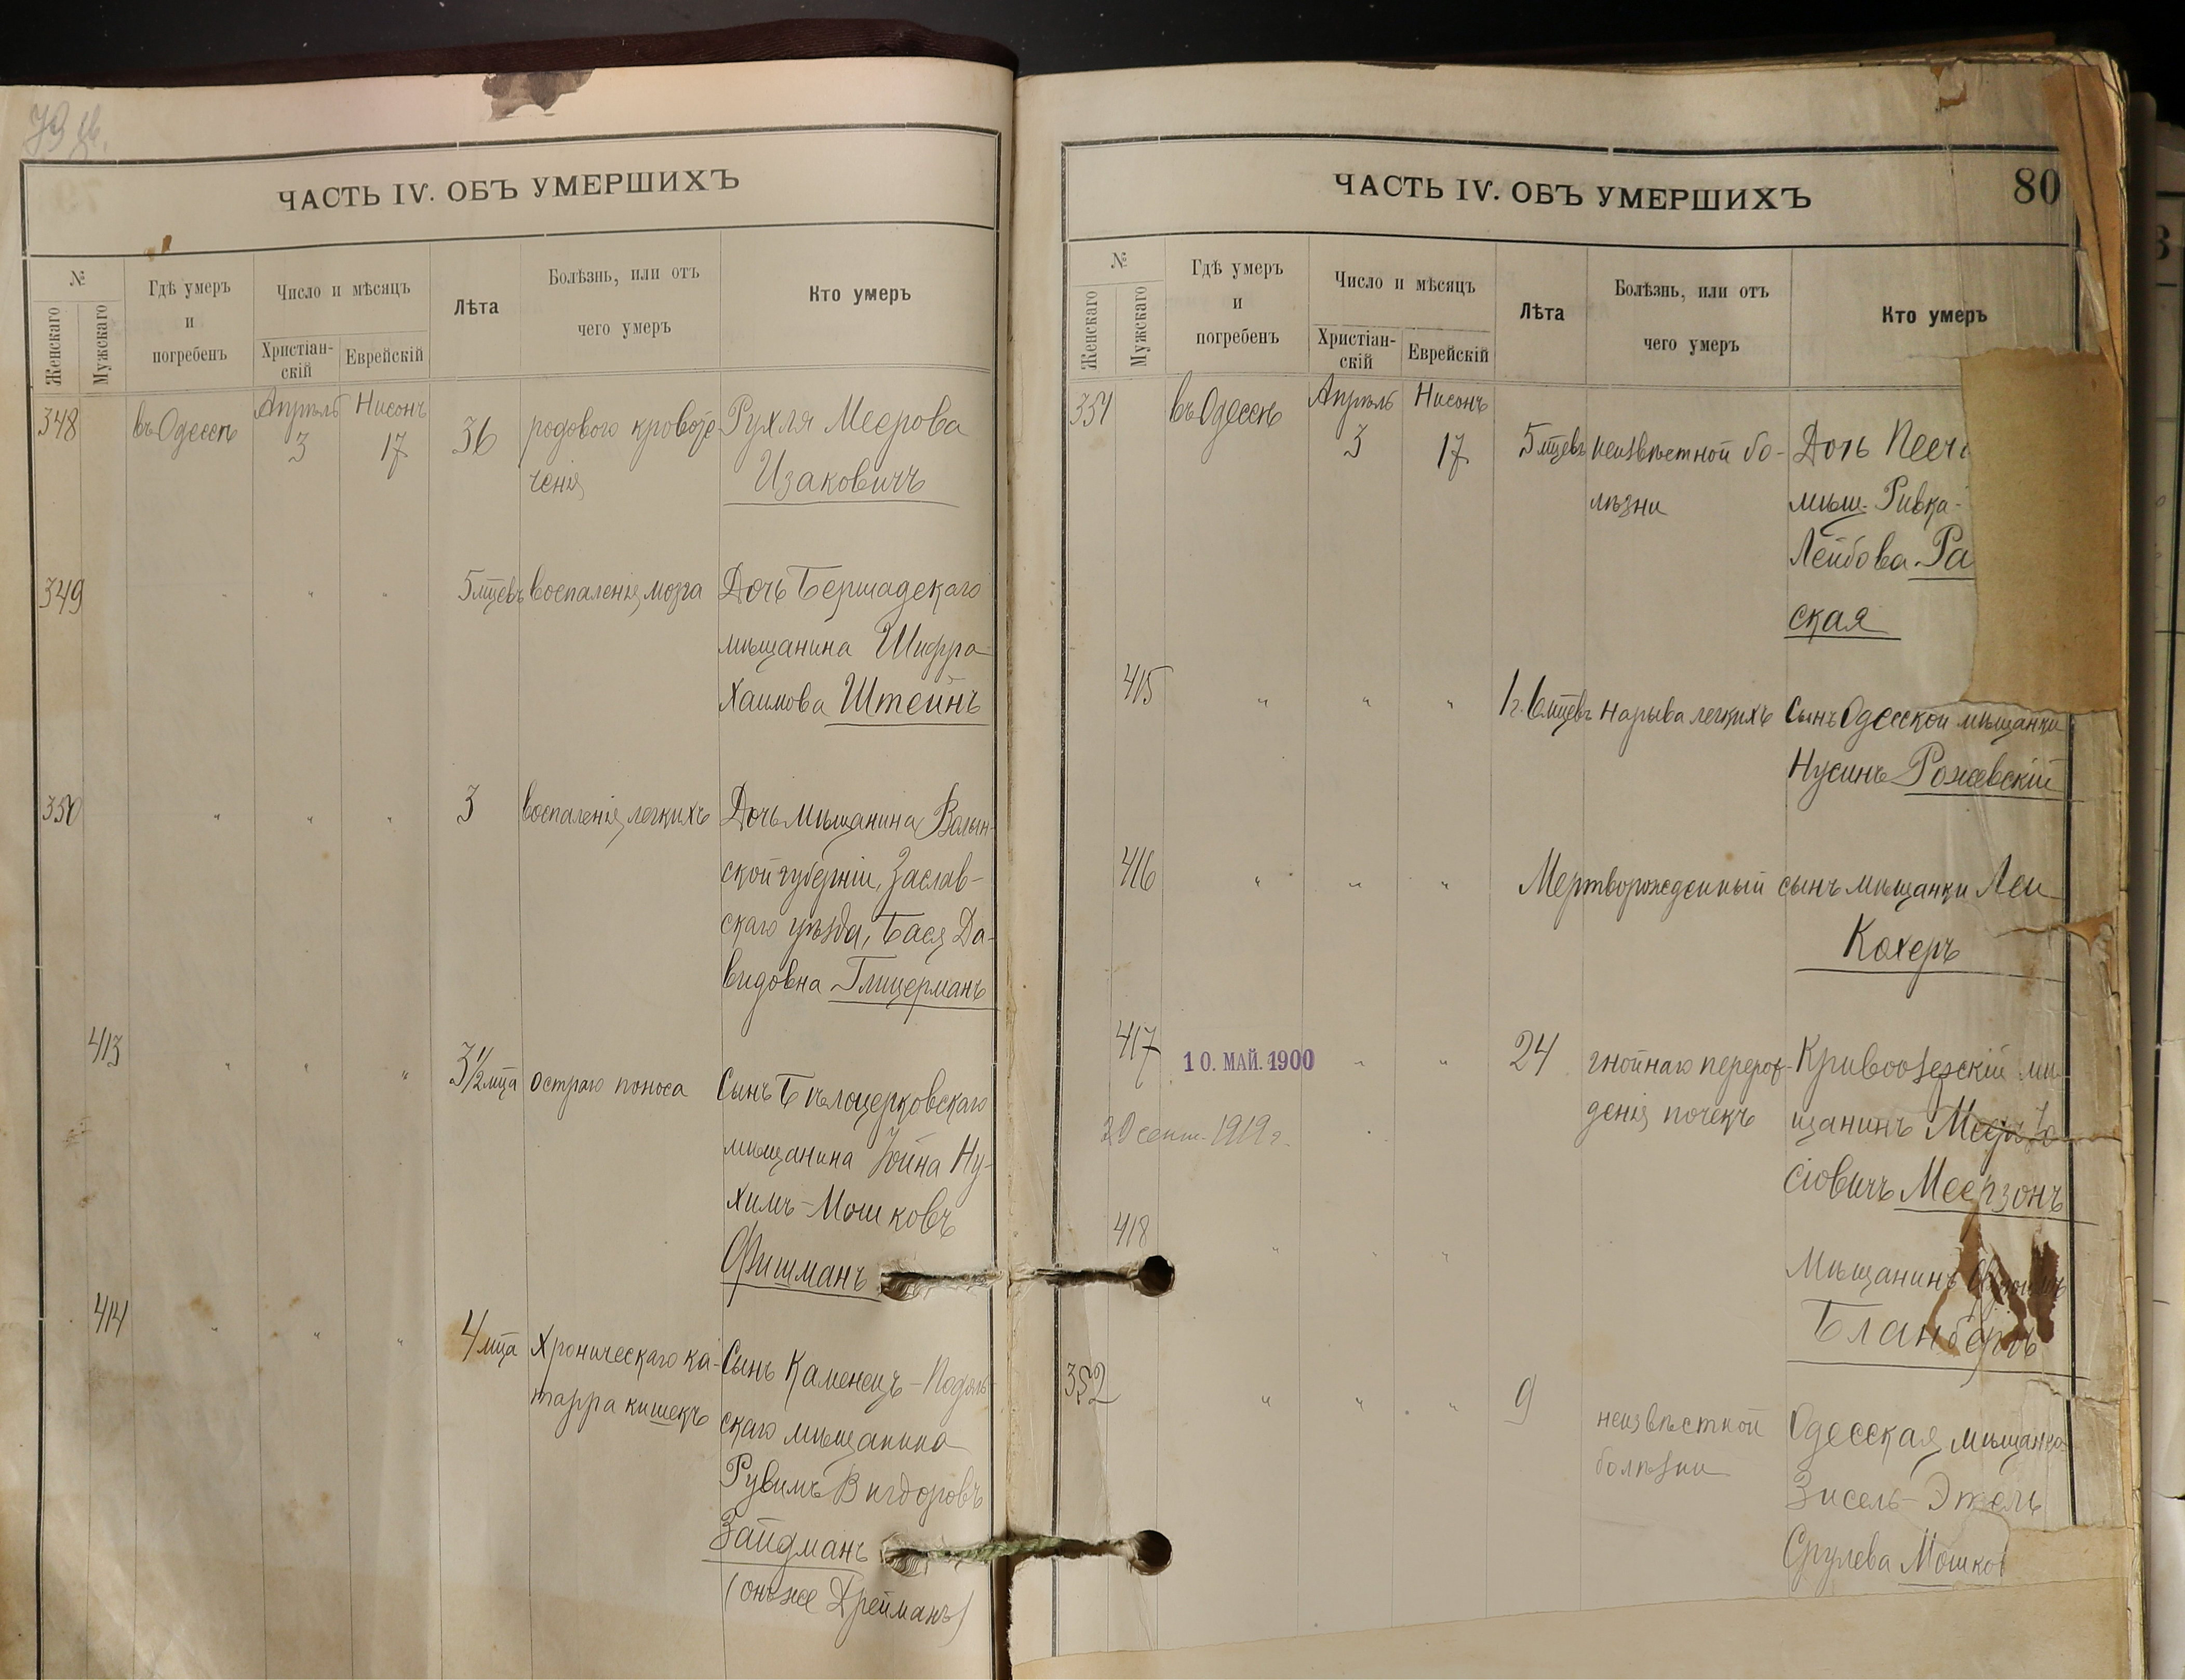 ЧАСТЬ IV. ОБЪ УМЕРШИХЪ
№
Женскаго
Мужскаго
Гдѣ умеръ
и
погребенъ
Число и мѣсяцъ
Христіан-
скій
Еврейскій
Лѣта
Болѣзнь, или отъ
чего умеръ
Кто умеръ
348 въ Одессѣ Апрѣль Нисонъ 36 родового кровоте- Рухля Меерова
3 17 ченія Изаковичъ
349 " " " 5 мцевъ воспаленія мозга Дочь Бершадскаго
мѣщанина Шифра
Хаимова Штейнъ
350 " " " 3 воспаленія легкихъ Дочь мѣщанина Волын-
ской губерніи, Заслав-
скаго уѣзда, Бася Да-
видовна Глицерманъ
413 " " " 3 1/2 мца остраго поноса Сынъ Бѣлоцерковскаго
мѣщанина Іойна Ну-
химъ-Мошковъ
Фишманъ
414 " " " 4 мца хроническаго ка- Сынъ Каменецъ-Подоль-
тарра кишекъ скаго мѣщанина
Рувимъ Вигдоровъ
Зайдманъ
(онъ же Дрейманъ)
ЧАСТЬ IV. ОБЪ УМЕРШИХЪ
80
№
Женскаго
Мужскаго
Гдѣ умеръ
и
погребенъ
Число и мѣсяцъ
Христіан-
скій
Еврейскій
Лѣта
Болѣзнь, или отъ
чего умеръ
Кто умеръ
351 въ Одессѣ Апрѣль Нисонъ
3 17 5 мцевъ неизвѣстной бо- Дочь
лѣзни мѣщ. Ривка-
Лейбова Ра
ская
415 " " " 1 г. 6 мцевъ нарыва легкихъ Сынъ Одесской мѣщанки
Нусинъ Рожевскій
416 " " " Мертворожденный сынъ мѣщанки Леи
Кохеръ
417 10. МАЙ. 1900 " " 24 гнойнаго перерож- Кривоозерскій мѣ-
20 сент. 1919 г. денія почекъ щанинъ Мееръ Іо-
сіовичъ Меерзонъ
418 " " " Мѣщанинъ
Бланберъ
352 " " " 9 неизвѣстной Одесская мѣщанка
болѣзни Зисель-Этель
Срулева Мошков